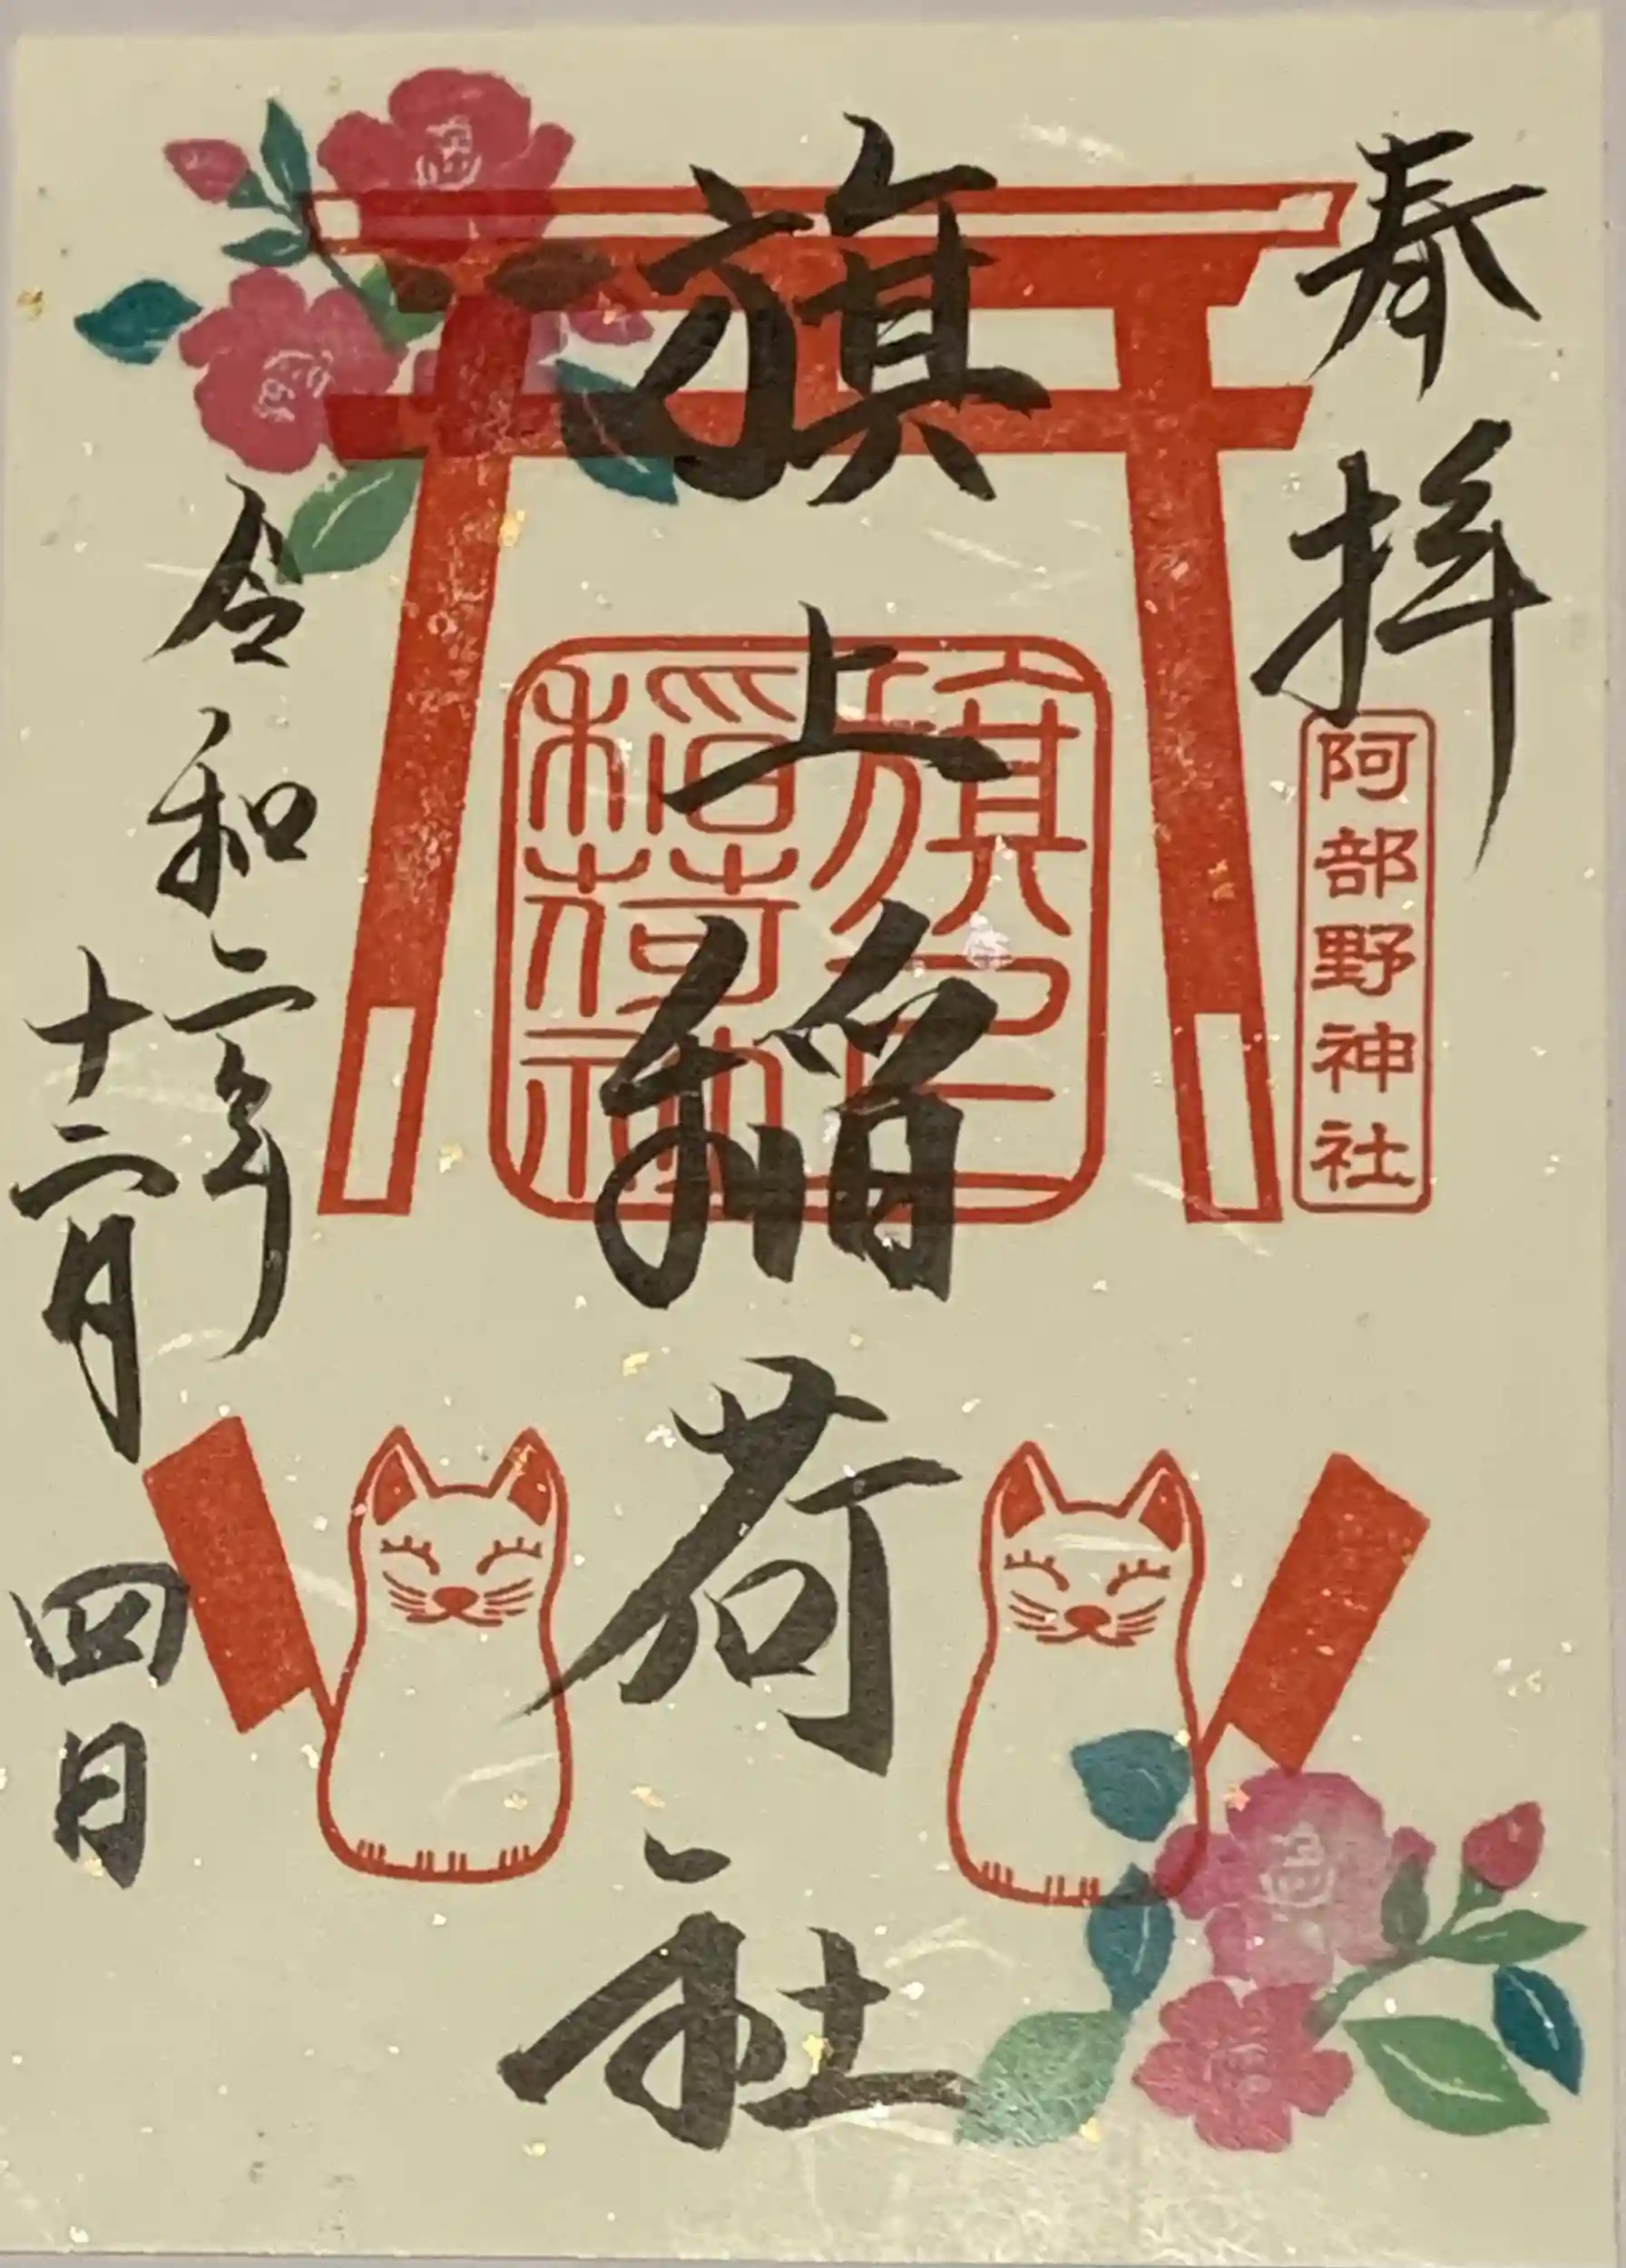 奉拝
阿部野神社
旗上稲荷社
令和二年
十二月四日